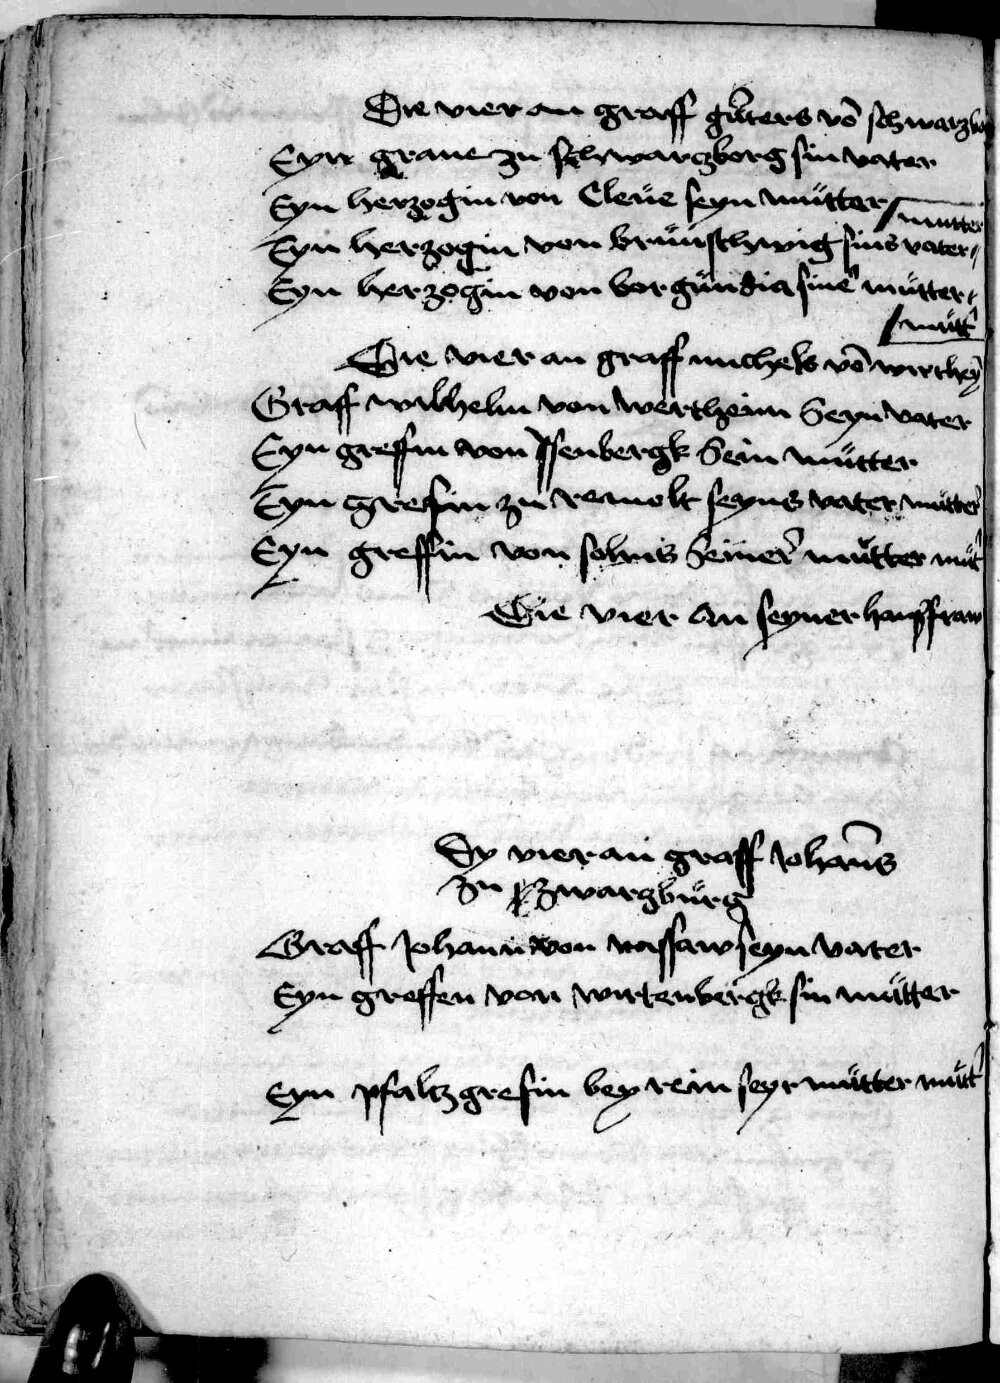 Die vier an graff gu̅ters vo̅ schwarzb
Eyn graue zu schwarczborg sin vater
Eyn herzogin von Cleue seyn mütter
mutter
Eyn herzogin von brunschwig sins vater
Eyn herzogin von borgündia sine mütter
mütt
Die vier an graff michels vo̅ wirthey̅
Graff wilhelm von wertheim Seyn vater
Eyn greffin von Jssenbergk Sein mütter
Eyn greffin zu remolt seyns vater mütter
Eyn greffin von solms Seiner mütter müt
Die vier an seyner haussfraw
Dy vier an graff Joha̅ns
zu swarzbürg
Graff Johann von nassaw seyn vater
Eyn greffen von wirtenbergk sin mütter
Eyn pfaltzgrefin bey rein seyr mütter müt